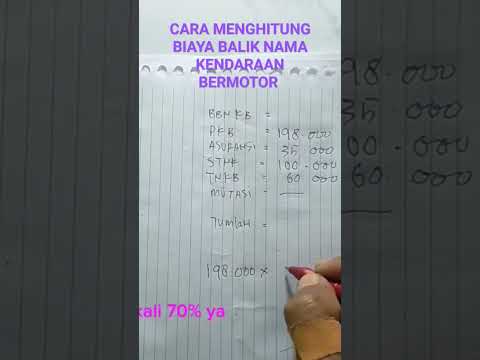 CARA MENGHITUNG
BIAYA BALIK NAMA
KENDARAAN
BERMOTOR
BBNKB =
PKB = 198.000
ASURANSI = 35 000
STNK = 100.000
TNKB = 60 000
MUTASI =
Jumlah =
198.000 x
kali 70% ya